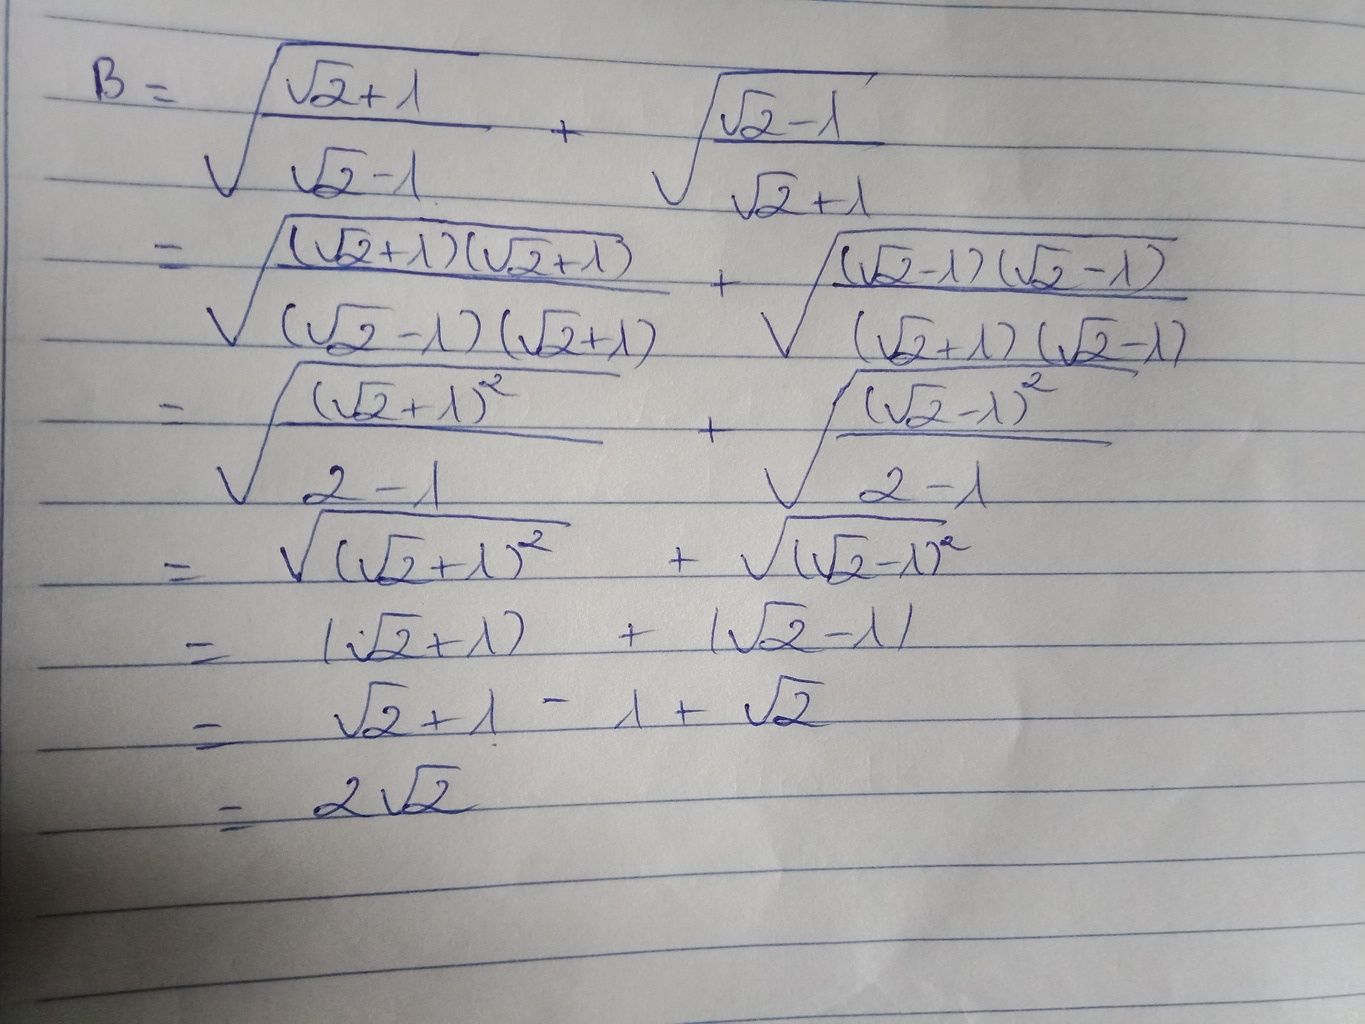 B = √((√2+1)/(√2-1)) + √((√2-1)/(√2+1))
= √(((√2+1)(√2+1))/((√2-1)(√2+1))) + √(((√2-1)(√2-1))/((√2+1)(√2-1)))
= √((√2+1)²/(2-1)) + √((√2-1)²/(2-1))
= √((√2+1)²) + √((√2-1)²)
= (√2+1) + |√2-1|
= √2+1 - 1 + √2
= 2√2